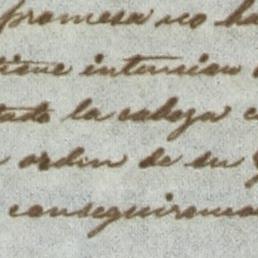 promesa no ha
tiene intencion
la cabeza
orden de su
conseguiremos